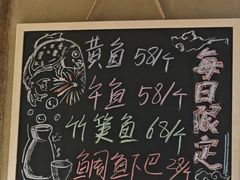 黄鱼 58/个
午鱼 58/个
竹筴鱼 68/个
鲷鱼下巴 28/个
每日限定